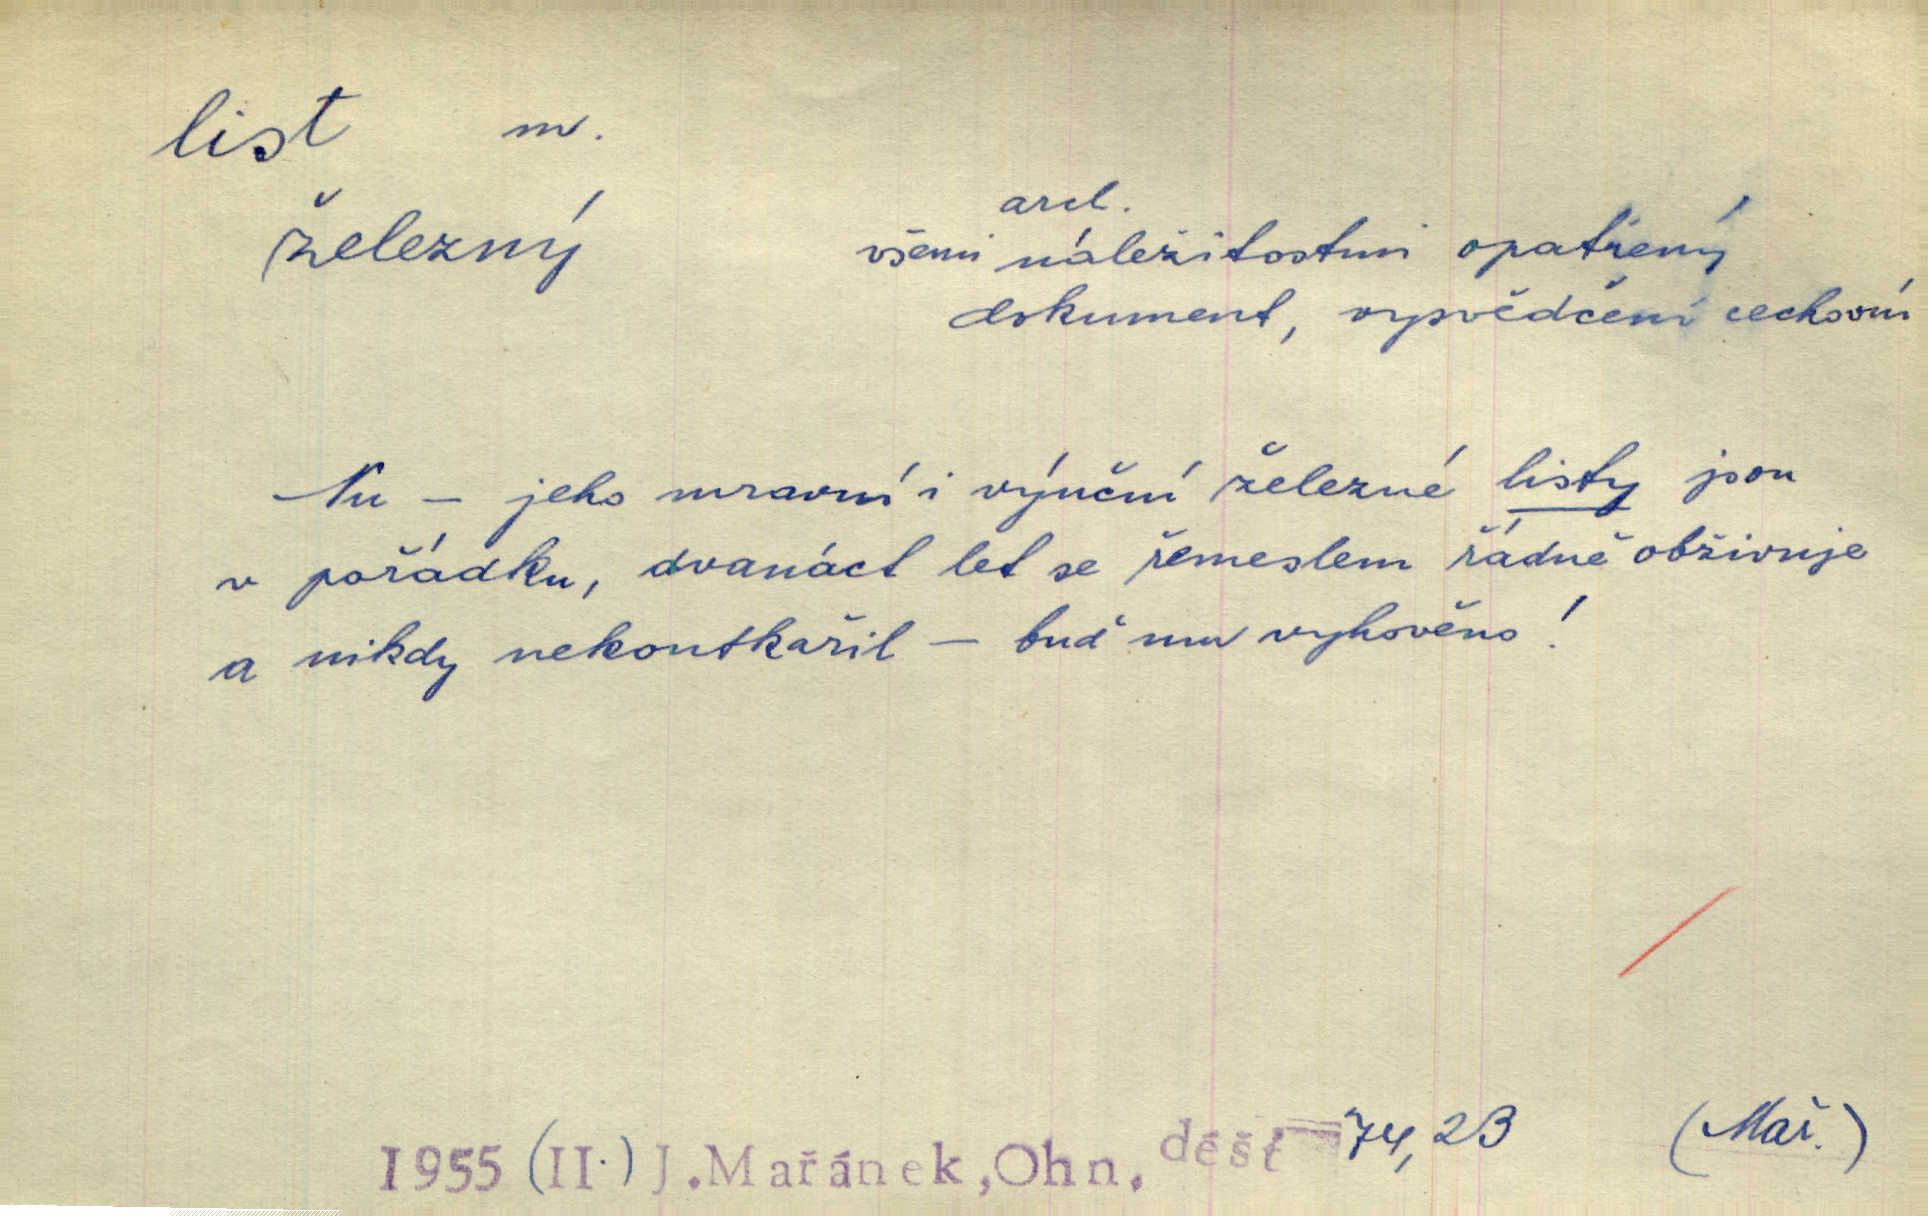 list m.
železný
arch.
všemi náležitostmi opatřený
dokument, vysvědčení cechovní
Nu – jeho mravní i výuční železné listy jsou
v pořádku, dvanáct let se řemeslem řádně obživuje
a nikdy nekoutkařil – buď mu vyhověno!
1955 (II.) J.Mařánek,Ohn. déšť 74, 23 (Mař.)